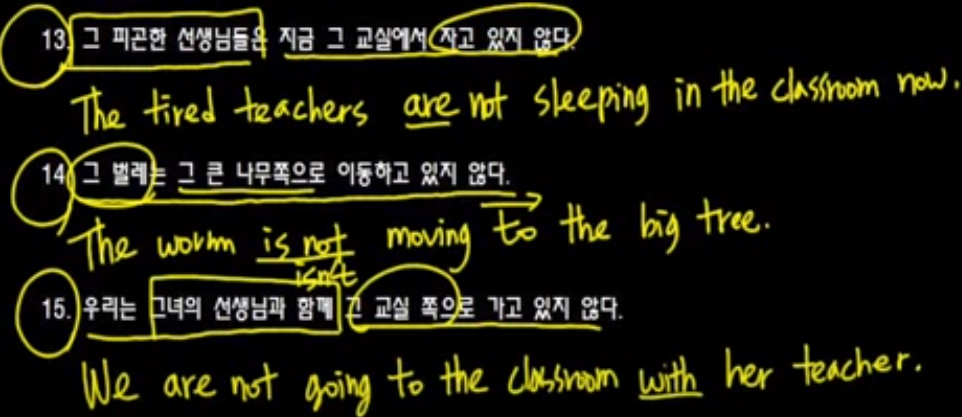 13. 그 피곤한 선생님들은 지금 그 교실에서 자고 있지 않다.
The tired teachers are not sleeping in the classroom now.
14. 그 벌레는 그 큰 나무쪽으로 이동하고 있지 않다.
The worm is not moving to the big tree.
isn't
15. 우리는 그녀의 선생님과 함께 그 교실 쪽으로 가고 있지 않다.
We are not going to the classroom with her teacher.